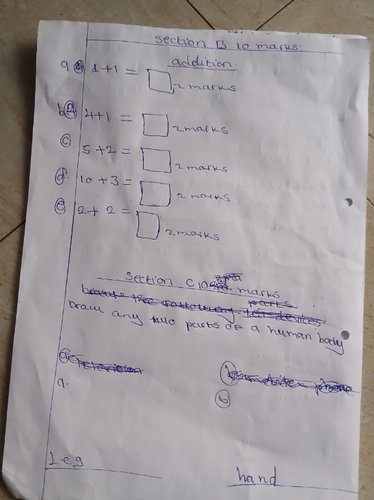 Section B 10 marks.
addition.
a 1+1 = 2 marks
b 4+1 = 2 marks
c 5+2 = 2 marks
d 10+3 = 2 marks
e 2+2 = 2 marks
Section C 10 marks
parts
draw any two parts of a human body
a.
b
Leg
hand